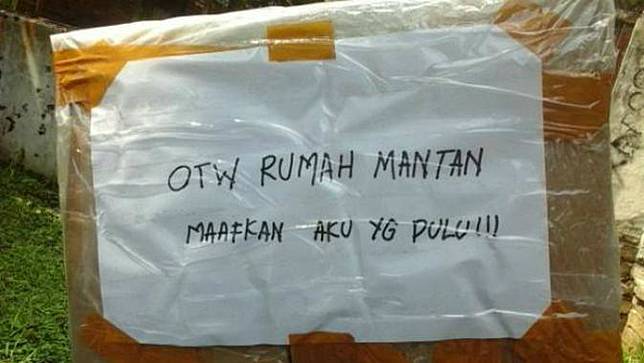 OTW RUMAH MANTAN
MAAFKAN AKU YG DULU!!!